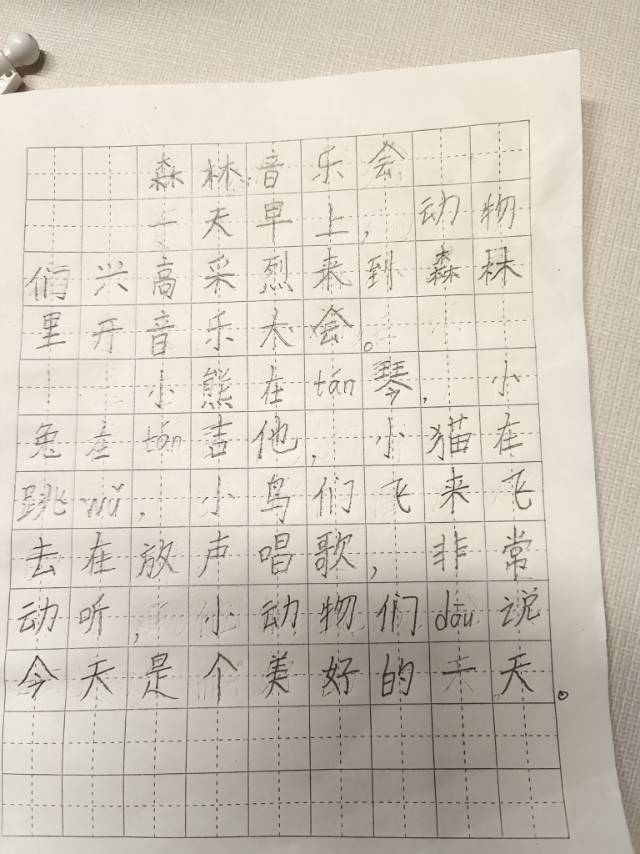 森林音乐会
一天早上，动物
们兴高采烈来到森林
里开音乐大会。
小熊在tán琴，小
兔在tán吉他，小猫在
跳wǔ，小鸟们飞来飞
去在放声唱歌，非常
动听，小动物们dōu说
今天是个美好的一天。